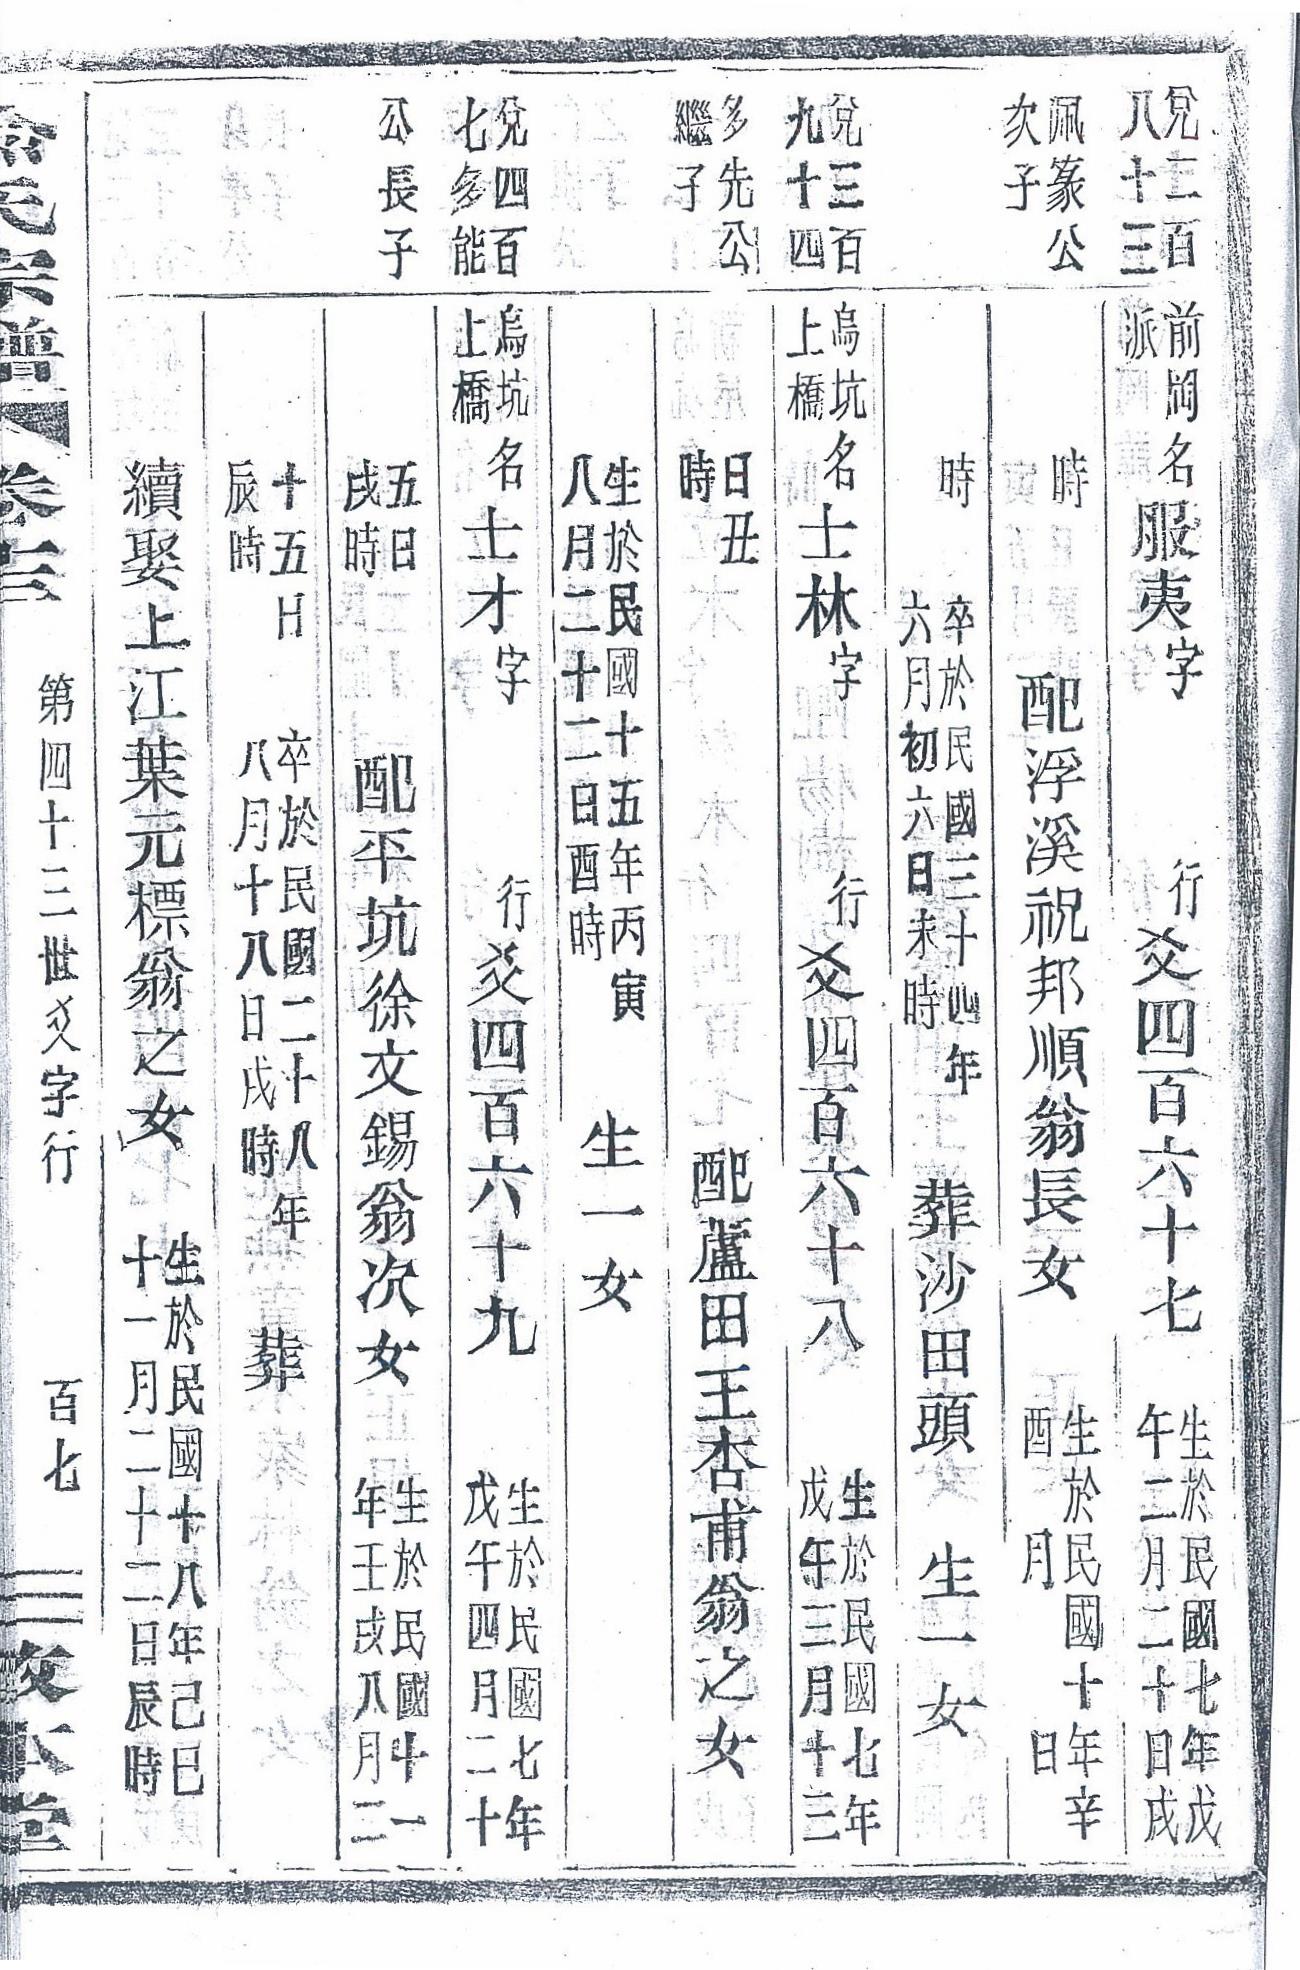 兌三百
八十三
佩篆公
次子
前岡
派
名服夷字
行爻四百六十七
生於民國七年戊
午二月二十日戌
時
配浮溪祝邦順翁長女
生於民國十年辛
酉 月 日
時
卒於民國三十四年
六月初六日未時
葬沙田頭
生一女
兌三百
九十四
多先公
繼子
烏坑
上橋
名士林字
行爻四百六十八
生於民國七年
戊午三月十三
日丑
時
配蘆田王杏甫翁之女
生於民國十五年丙寅
八月二十二日酉時
生一女
兌四百
七多能
公長子
烏坑
上橋
名士才字
行爻四百六十九
生於民國七年
戊午四月二十
五日
戌時
配平坑徐文錫翁次女
生於民國十一
年壬戌八月二
十五日
辰時
卒於民國二十八年
八月十八日戌時
葬
續娶上江葉元標翁之女
生於民國十八年己巳
十一月二十二日辰時
氏宗譜
卷
第四十三世爻字行
百七
敦本堂